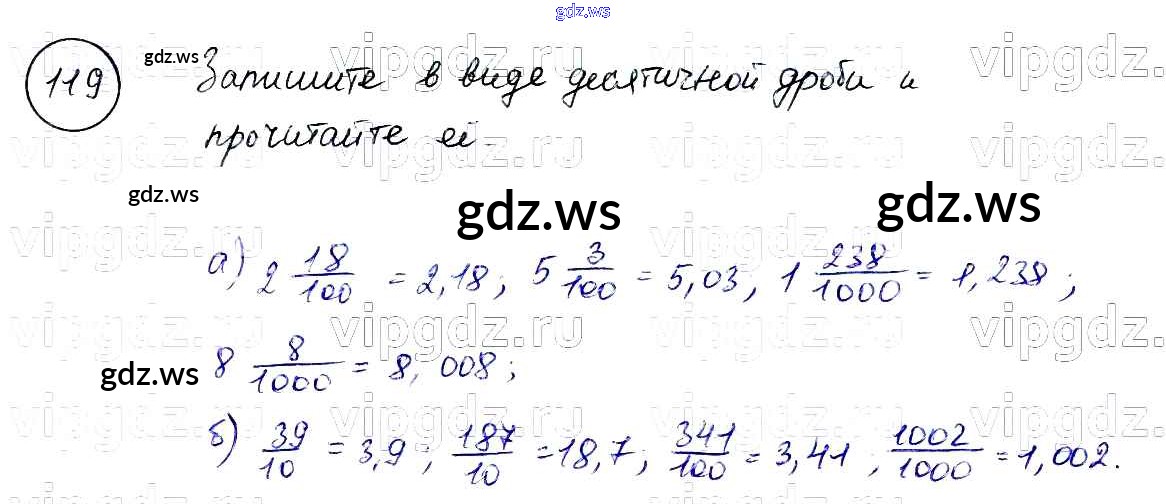 gdz.ws
119 gdz.ws Запишите в виде десятичной дроби и vipgdz.ru
прочитайте её.
vipgdz.ru vipgdz.ru vipgdz.
gdz.ws gdz.ws gdz.ws
vipgdz.ru vipgdz.ru vipgdz.
а) 2 18/100 = 2,18; 5 3/100 = 5,03; 1 238/1000 = 1,238;
vipgdz.ru vipgdz.ru vipgdz.
gdz.ws 8 8/1000 = 8,008;
vipgdz.ru vipgdz.ru vipgdz.
б) 39/10 = 3,9; 187/10 = 18,7; 341/100 = 3,41; 1002/1000 = 1,002.